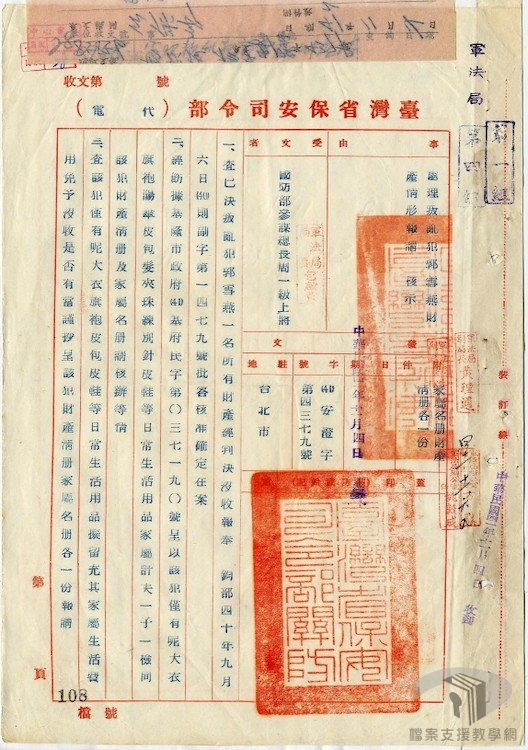 收文第 號
臺灣省保安司令部（代電）
事由
處理叛亂犯郭雪燕財
產情形報請 核示
受文者
國防部參謀總長周一級上將
附件
家屬名冊財產
清冊各一份
發文
日期
中華民國 年 月四日
字號
(41)安澄字
第四三七九號
駐地
台北市
一、查已決叛亂犯郭雪燕一名所有財產經判決沒收報奉 鈞部四十年九月
六日(40)則副字第一四七九號批答核准確定在案
二、茲訪據基隆市政府(41)基府民字第〇三七一九〇號呈以該犯僅有呢大衣
旗袍陽傘皮包髮夾珠練別針皮鞋等日常生活用品家屬計夫一子一檢同
該犯財產清册及家屬名册請核辦等情
三、查該犯僅有呢大衣旗袍皮包皮鞋等日常生活用品擬留充其家屬生活費
用免予沒收是否有當謹抄呈該犯財產清册家屬名册各一份報請
軍法局
第一組
第四組
黃理通
裝訂線
中華民國 年 月四日 收到
臺灣省保安司令部關防
第 頁
108
檔號
檔案支援教學網